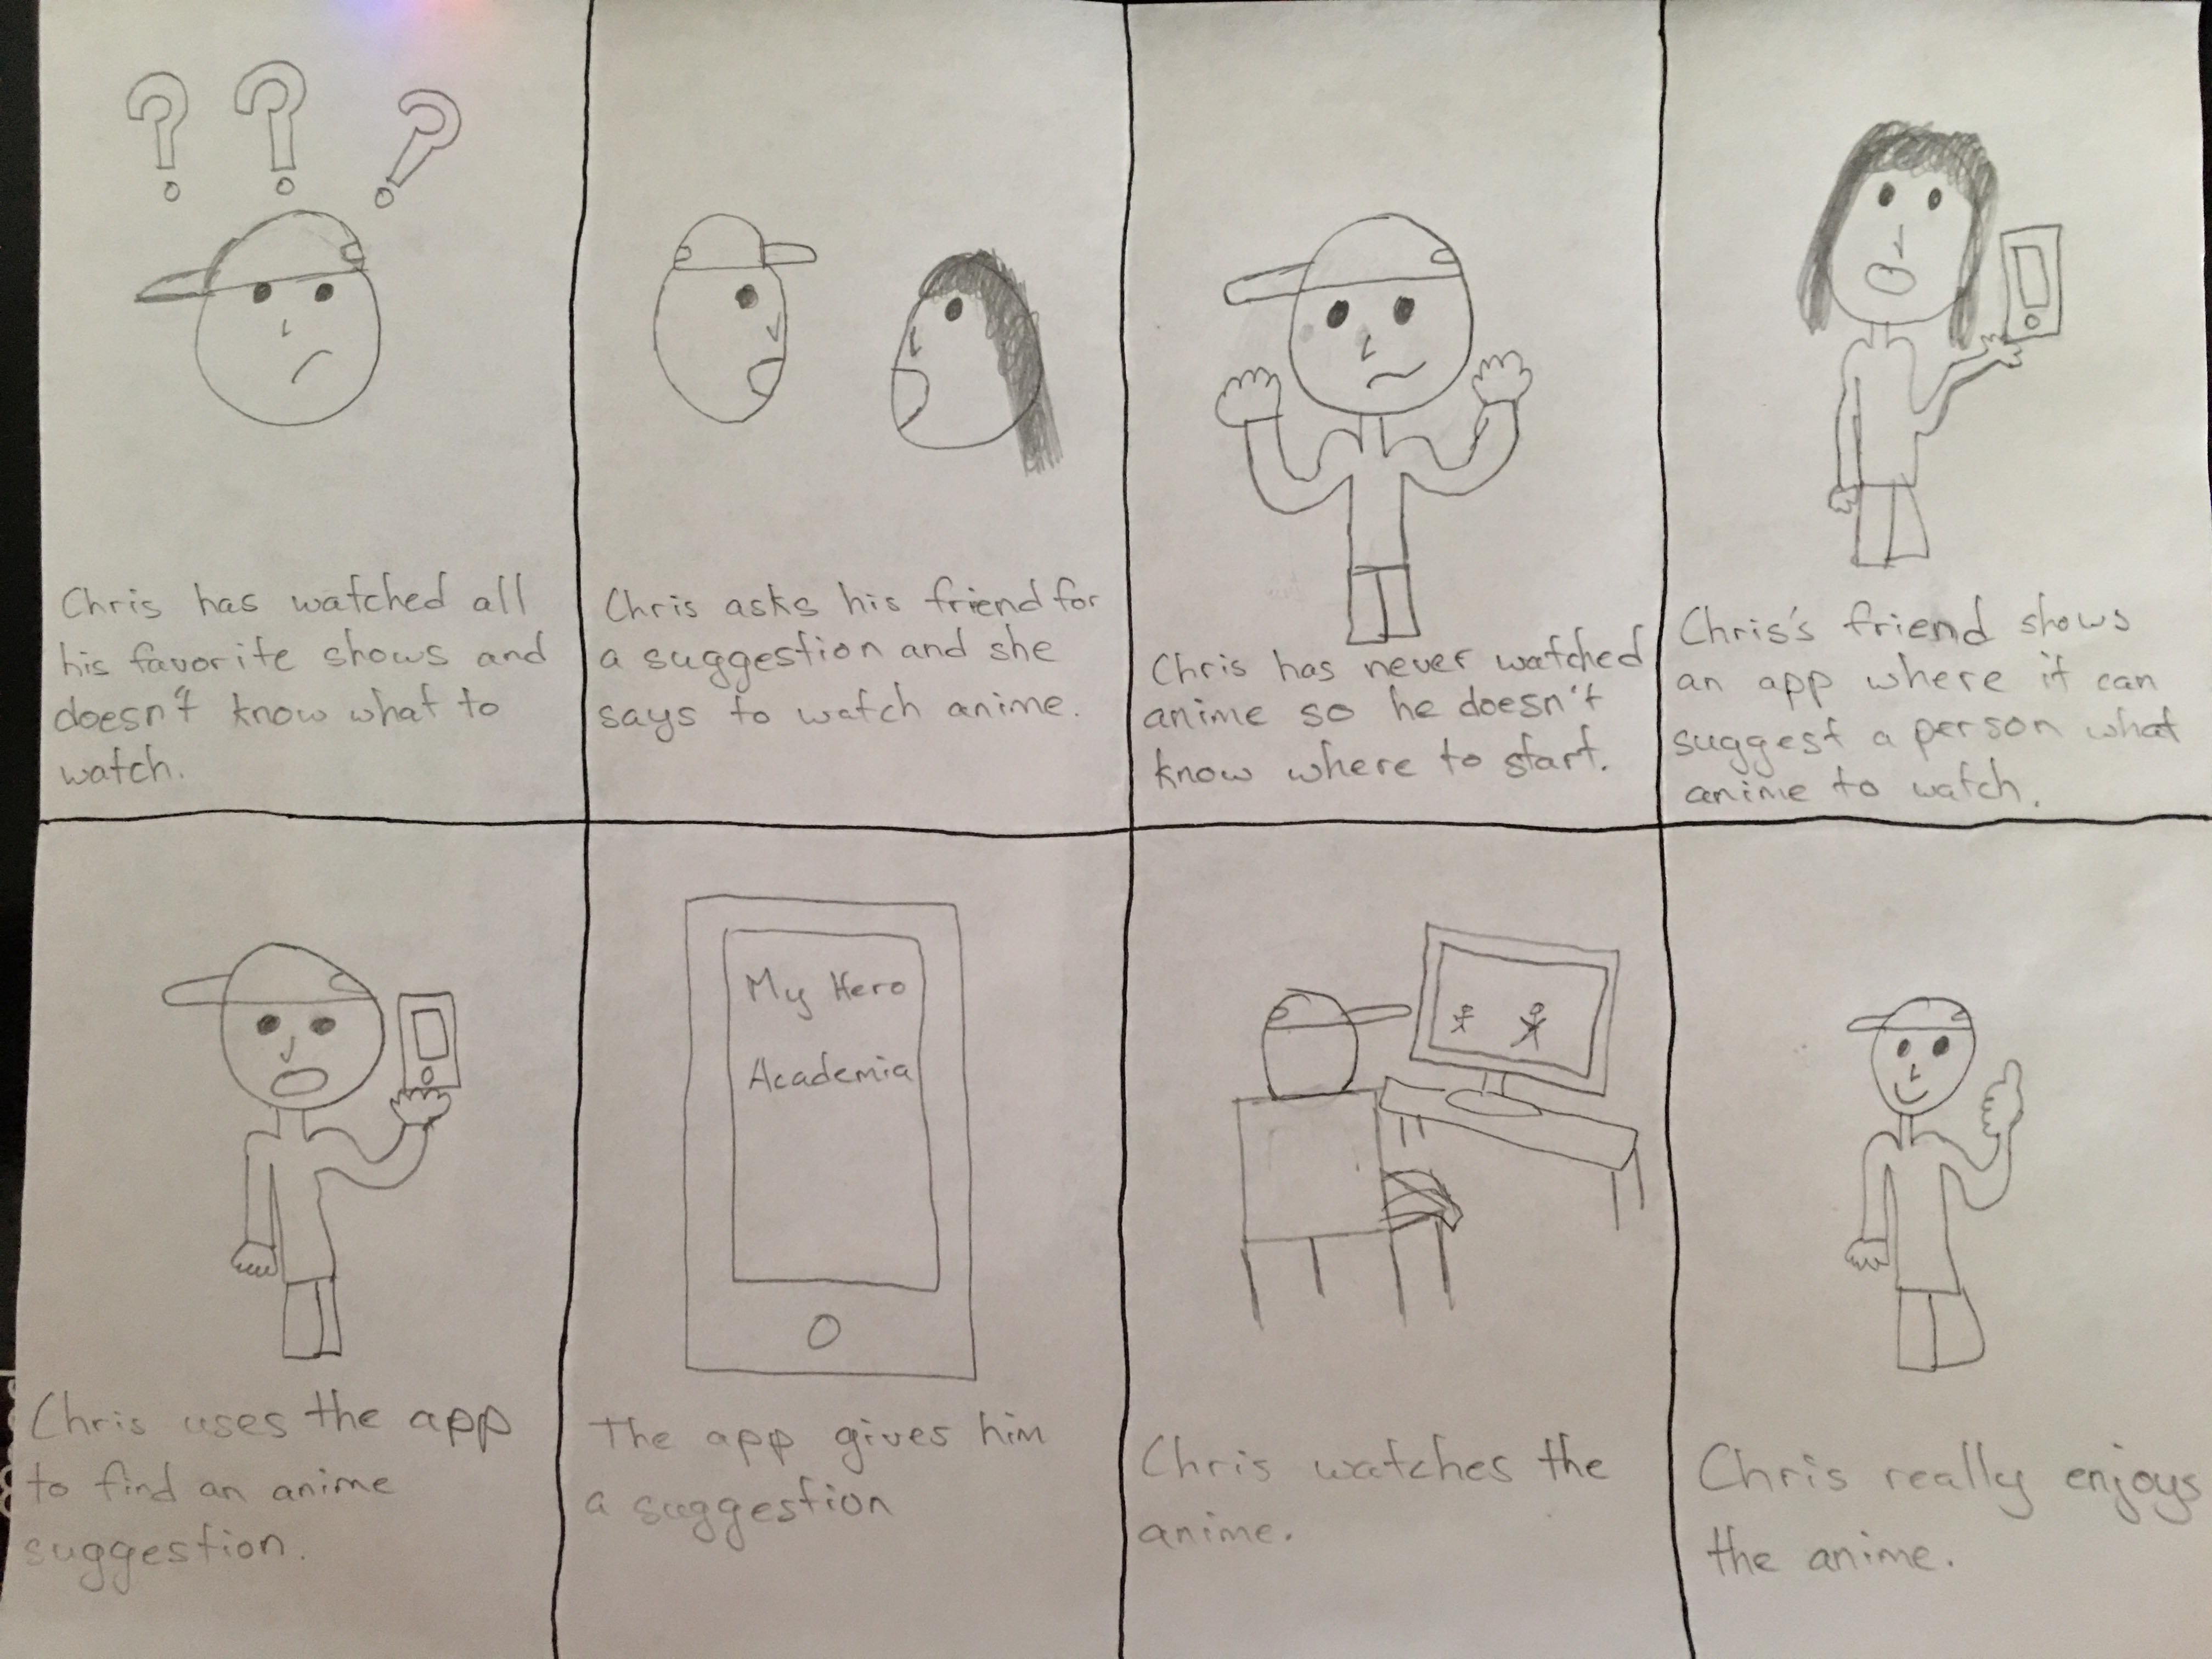 Chris has watched all
his favorite shows and
doesn't know what to
watch.
Chris asks his friend for
a suggestion and she
says to watch anime.
Chris has never watched
anime so he doesn't
know where to start.
Chris's friend shows
an app where it can
suggest a person what
anime to watch.
Chris uses the app
to find an anime
suggestion.
My Hero
Academia
The app gives him
a suggestion
Chris watches the
anime.
Chris really enjoys
the anime.